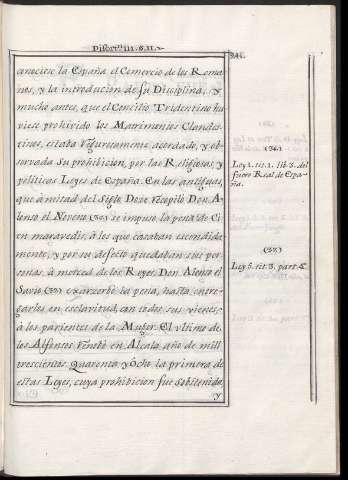 Discurso III. §. II.
241.
conociese la España el Comercio de los Roma
nos, y la introducion de su Disciplina, y
mucho antes, que el Concilio Tridentino hu
viese prohivido los Matrimonios Clandes
tinos, estaba vigurosamente acordado, y ob
servada su prohivicion, por las Religiosas, y
políticas Leyes de España. En las antiguas,
que à mitad del Siglo Doze recopiló Don A
lonso el Noveno (36) se impuso la pena de Ci
en maravedis, à los que casaban escondida
mente, y por su defecto quedaban sus per
sonas, à merced de los Reyes. Don Alonso el
Savio (37) exazerbó la pena, hasta entre
garlos en esclavitud, con todos sus vienes,
à los parientes de la Muger. El vltimo de
los Alfonsos renobó en Alcala, año de mill
trescientos Quarenta y ôcho la primera de
estas Leyes, cuya prohibicion fue sobstenida,
y
(36)
Ley 1. tit. 1. lib. 3. del
fuero Real de Espa
ña.
(37)
Ley 5. tit. 3. part. 4.